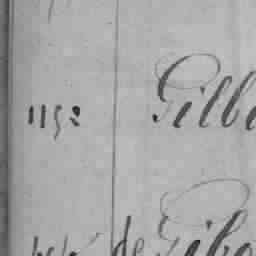 1152 Gilbe
de Gibo